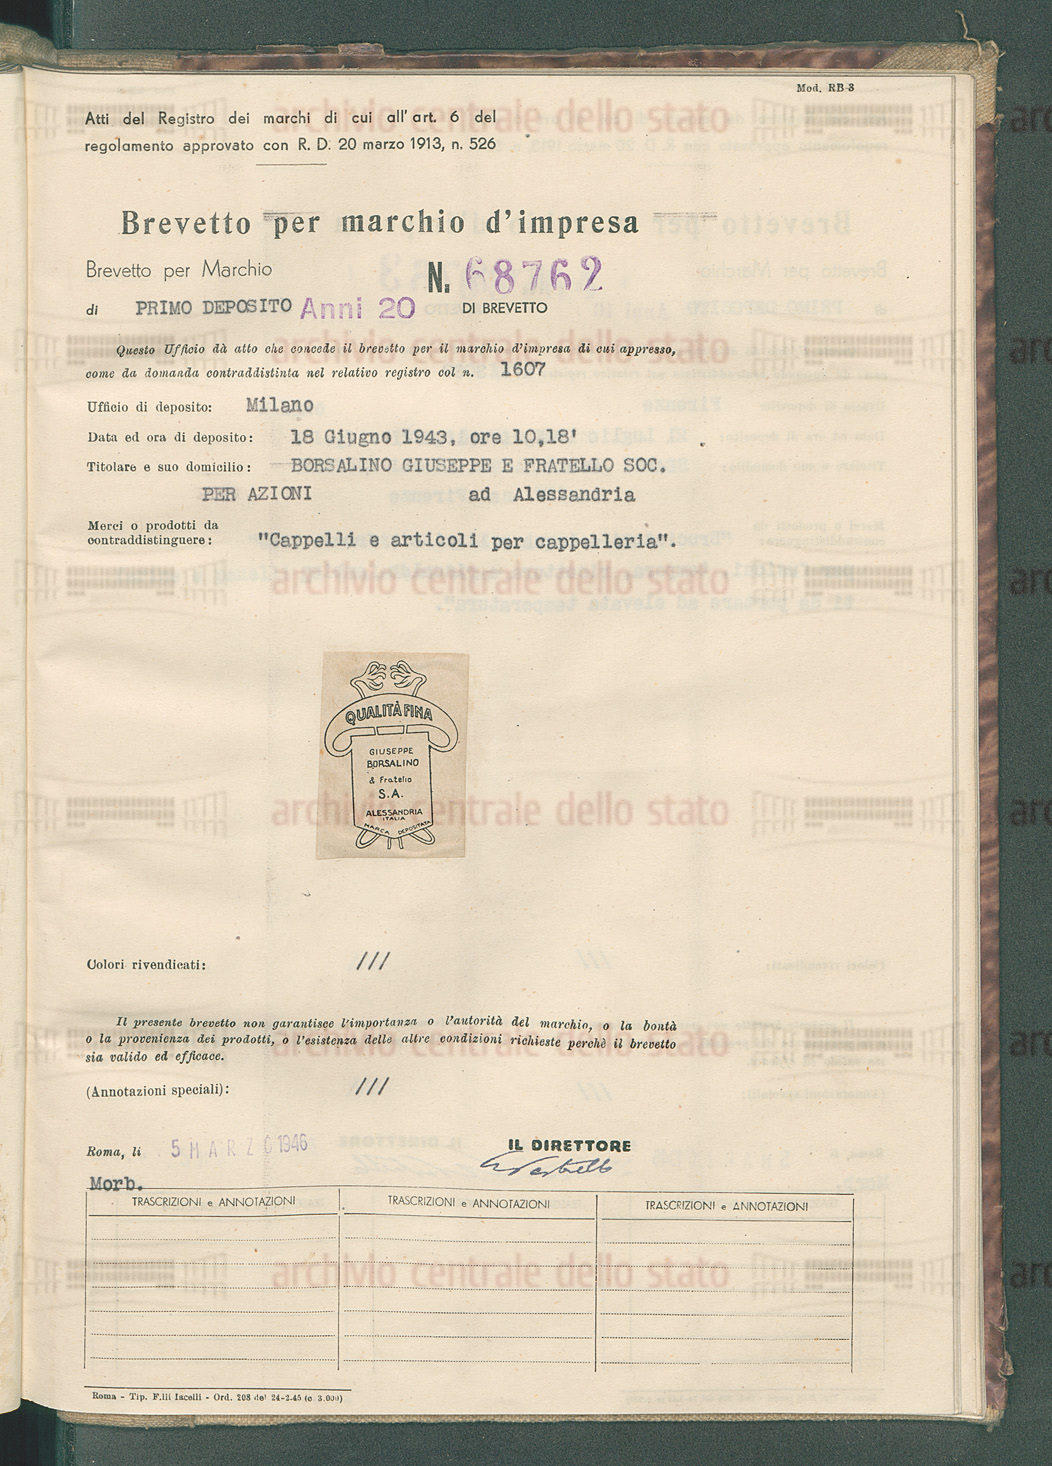 Mod. RB-3
Atti del Registro dei marchi di cui all'art. 6 del
regolamento approvato con R. D. 20 marzo 1913, n. 526
Brevetto per marchio d'impresa
Brevetto per Marchio N. 68762
di PRIMO DEPOSITO Anni 20 DI BREVETTO
Questo Ufficio dà atto che concede il brevetto per il marchio d'impresa di cui appresso,
come da domanda contraddistinta nel relativo registro col n. 1607
Ufficio di deposito: Milano
Data ed ora di deposito: 18 Giugno 1943, ore 10,18'
Titolare e suo domicilio: BORSALINO GIUSEPPE E FRATELLO SOC.
PER AZIONI ad Alessandria
Merci o prodotti da
contraddistinguere: "Cappelli e articoli per cappelleria".
QUALITÀ FINA
GIUSEPPE
BORSALINO
& Fratello
S.A.
ALESSANDRIA
ITALIA
MARCA DEPOSITATA
Colori rivendicati: ///
Il presente brevetto non garantisce l'importanza o l'autorità del marchio, o la bontà
o la provenienza dei prodotti, o l'esistenza delle altre condizioni richieste perchè il brevetto
sia valido ed efficace.
(Annotazioni speciali): ///
Roma, li 5 MARZO 1946 IL DIRETTORE
Morb.
TRASCRIZIONI e ANNOTAZIONI TRASCRIZIONI e ANNOTAZIONI TRASCRIZIONI e ANNOTAZIONI
Roma - Tip. F.lli Iacelli - Ord. 208 del 24-2-45 (c 3.000)
archivio centrale dello stato
archivio centrale dello stato
archivio centrale dello stato
archivio centrale dello stato
archivio centrale dello stato
archivio centrale dello stato